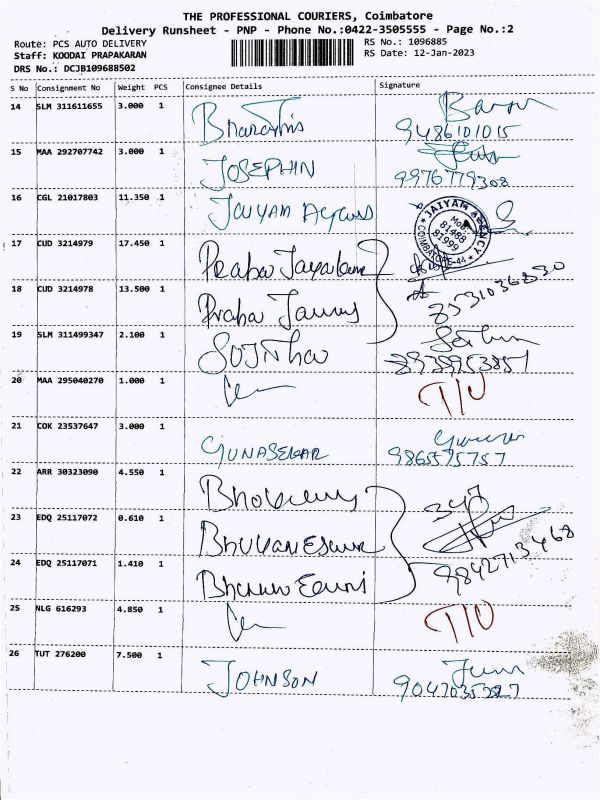 THE PROFESSIONAL COURIERS, Coimbatore
Delivery Runsheet - PNP - Phone No.:0422-3505555 - Page No.:2
Route: PCS AUTO DELIVERY
RS No.: 1096885
Staff: KOODAI PRAPAKARAN
RS Date: 12-Jan-2023
DRS No.: DCJB109688502
S No Consignment No Weight PCS Consignee Details Signature
14 SLM 311611655 3.000 1
9486101015
15 MAA 292707742 3.000 1
JOSEPHIN 9976779308
16 CGL 21017803 11.350 1
JAIYAM AGENCY
MOB:
81488
81999
COIMBATORE-44
17 CUD 3214979 17.450 1
Praba
18 CUD 3214978 13.500 1
Praba 8531036830
19 SLM 311499347 2.100 1
8939953857
20 MAA 295040270 1.000 1
T/U
21 COK 23537647 3.000 1
GUNASEKAR 9865575757
22 ARR 30323090 4.550 1
23 EDQ 25117072 0.610 1
24 EDQ 25117071 1.410 1
9842713468
25 NLG 616293 4.850 1
T/U
26 TUT 276200 7.500 1
JOHNSON